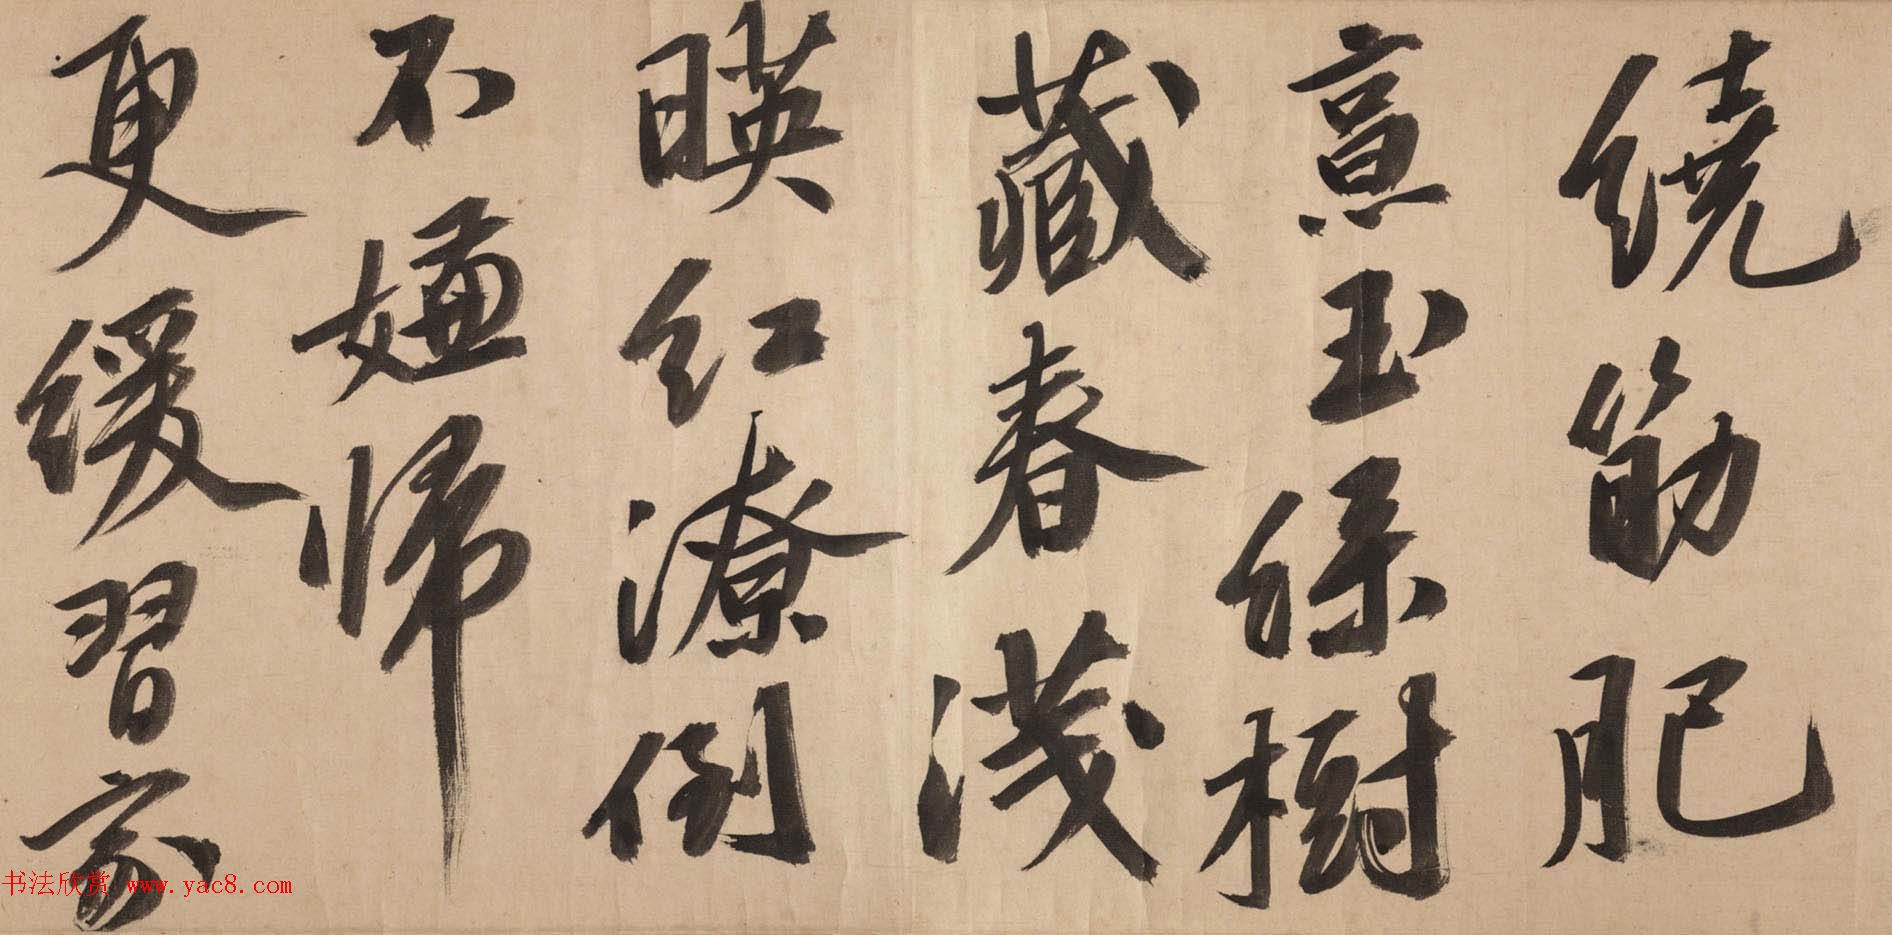 繞筋肥
玉緑樹
藏春淺
暎紅潦倒
不嫌帰
更緩習家
书法欣赏 www.yac8.com